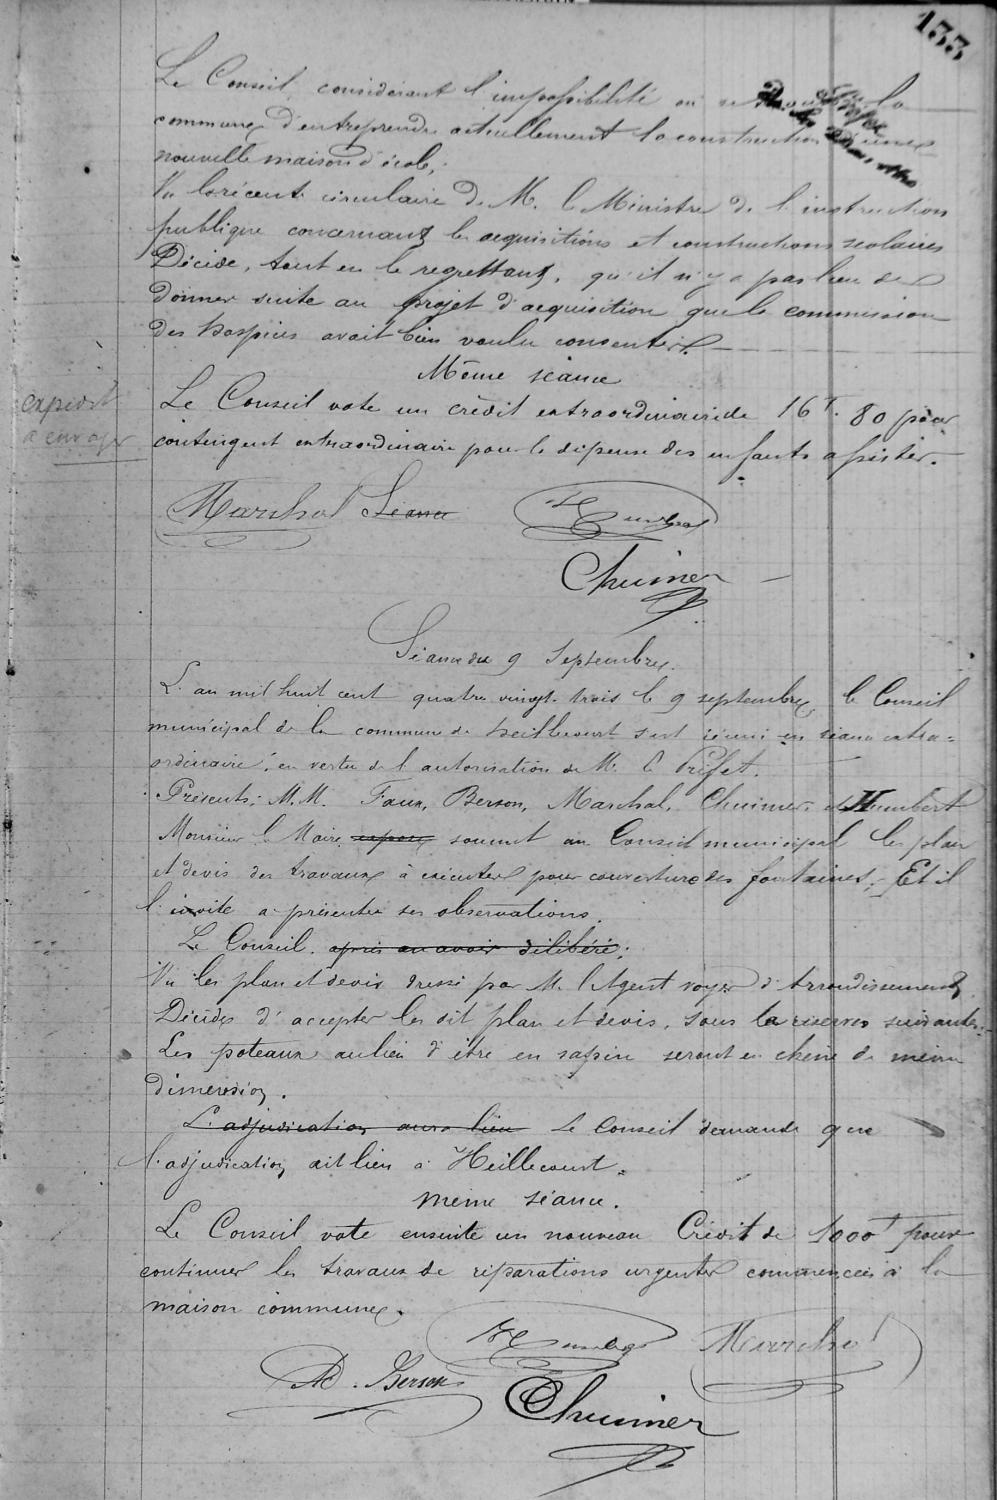 133
Le Conseil, considérant l'impossibilité où se trouve la
commune d'entreprendre actuellement la construction d'une
nouvelle maison d'école,
Vu la récente circulaire de M. le Ministre de l'instruction
publique concernant les acquisitions et constructions scolaires
Décide, tout en le regrettant, qu'il n'y a pas lieu de
donner suite au projet d'acquisition que la commission
des hospices avait bien voulu consentir.
Même séance
Le Conseil vote un crédit extraordinaire de 16f.80 pour
contingent extraordinaire pour la dépense des enfants assistés.
à envoyer
Marchal Séance Humbert
Chuiner
Séance du 9 Septembre.
L'an mil huit cent quatre vingt-trois le 9 septembre, le Conseil
municipal de la commune de heillecourt s'est réuni en séance extra=
ordinaire, en vertu de l'autorisation de M. le Préfet.
Présents: M.M. Faux, Berson, Marchal, Chuiner et Humbert
Monsieur le Maire expose soumet au Conseil municipal les plan
et devis des travaux à exécuter pour couverture des fontaines; Et il
l'invite à présenter ses observations.
Le Conseil, après en avoir délibéré;
Vu les plan et devis dressé par M. l'Agent voyer d'Arrondissement
Décide d'accepter les dit plan et devis, sous la réserves suivantes:
Les poteaux au lieu d'être en sapin seront en chêne de même
dimension.
L'adjudication aura lieu Le Conseil demande que
l'adjudication ait lieu à Heillecourt.
même séance.
Le Conseil vote ensuite un nouveau Crédit de 1000f pour
continuer les travaux de réparations urgentes commencées à la
maison commune.
Humbert Marchal
Ad. Berson
Chuiner